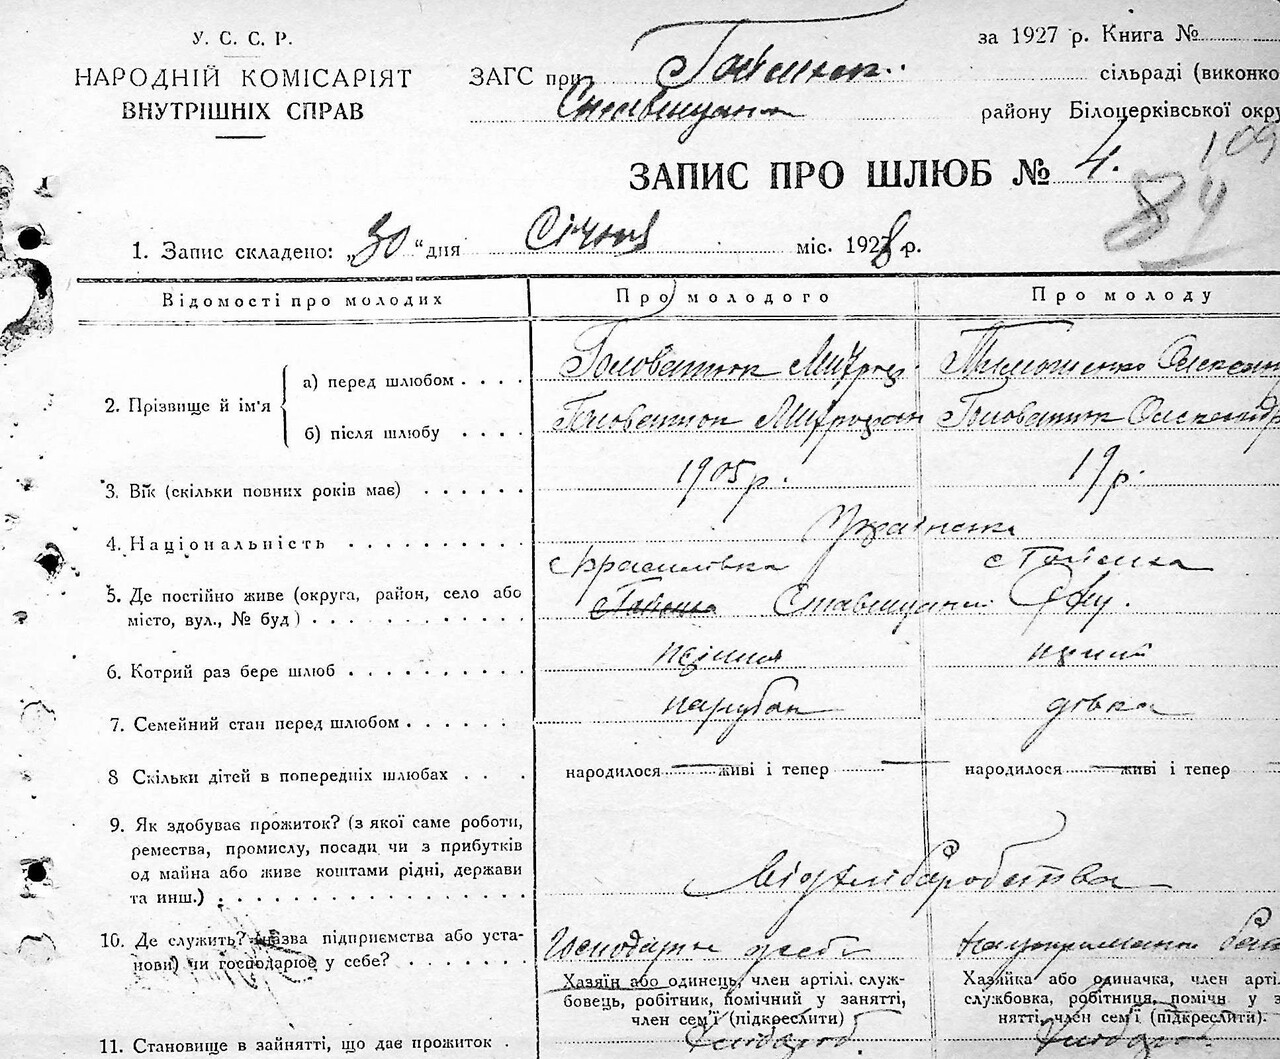 У. С. С. Р.
НАРОДНІЙ КОМІСАРІЯТ
ВНУТРІШНІХ СПРАВ
за 1927 р. Книга №
ЗАГС при сільраді (виконко
району Білоцерківської окру
ЗАПИС ПРО ШЛЮБ № 4.
109
84
1. Запис складено: „30" дня Січня міс. 1928 р.
Відомості про молодих Про молодого Про молоду
2. Прізвище й ім'я
а) перед шлюбом . . . . Головатюк Митроф. Тимошенко Олександ
б) після шлюбу . . . . Головатюк Митрофан Головатюк Олександр
3. Вік (скільки повних років має) . . . . . . 1905 р. 19 р.
4. Національність . . . . . . . . . . Українська
с Красилівка с Гайсинка
5. Де постійно живе (округа, район, село або
місто, вул., № буд) . . . . . . . . . . . . Ставищанськ
6. Котрий раз бере шлюб . . . . . . . . . перший перший
7. Семейний стан перед шлюбом . . . . . . парубок дівка
8 Скільки дітей в попередніх шлюбах . . . народилося живі і тепер народилося живі і тепер
9. Як здобуває прожиток? (з якої саме роботи,
ремества, промислу, посади чи з прибутків
од майна або живе коштами рідні, держави
та инш.) . . . . . . . . . . . . . . . . . Від хліборобства
10. Де служить? (назва підприємства або уста-
нови) чи господарює у себе? . . . . . . . Господарює у себе На утриманні
Хазяїн або одинець, член артілі, служ-
бовець, робітник, помічний у занятті,
член сем'ї (підкреслити)
Хазяйка або одиначка, член арті
службовка, робітниця, помічн у з
нятті, член сем'ї (підкреслити).
11. Становище в зайнятті, що дає прожиток . Хлібороб Хлібороб